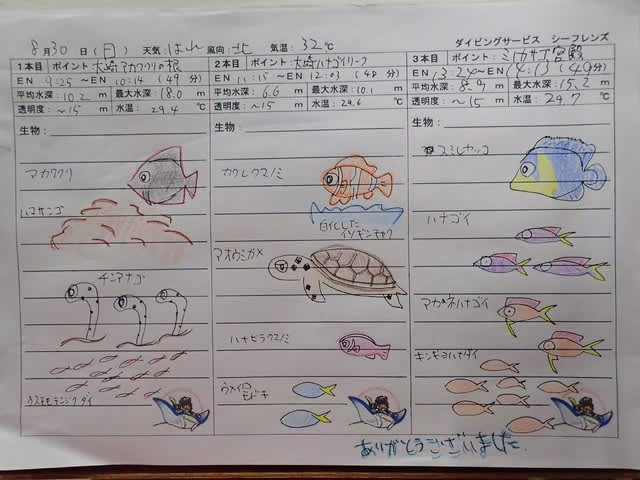 ダイビングサービス シーフレンズ
8月30日(日) 天気:はれ 風向:北 気温:32℃
1本目 ポイント:大崎アカククリの根
EN 9:25~EN 10:14(49分)
平均水深:10.2 m 最大水深:18.0 m
透明度:~15 m 水温:29.4 ℃
生物:
アカククリ
ハマサンゴ
チンアナゴ
テンジクダイ
2本目 ポイント:大崎ハナゴイリーフ
EN 11:15~EN 12:03(48分)
平均水深:6.6 m 最大水深:10.1 m
透明度:~15 m 水温:29.6 ℃
生物:
カクレクマノミ
白化した
イソギンチャク
アオウミガメ
ハナビラクマノミ
ウメイロ
モドキ
3本目 ポイント:ミノカサゴ宮殿
EN 13:24~EN 14:13(49分)
平均水深:8.9 m 最大水深:15.2 m
透明度:~15 m 水温:29.7 ℃
生物:
スミレヤッコ
ハナゴイ
アカネハナゴイ
キンギョハナダイ
ありがとうございました